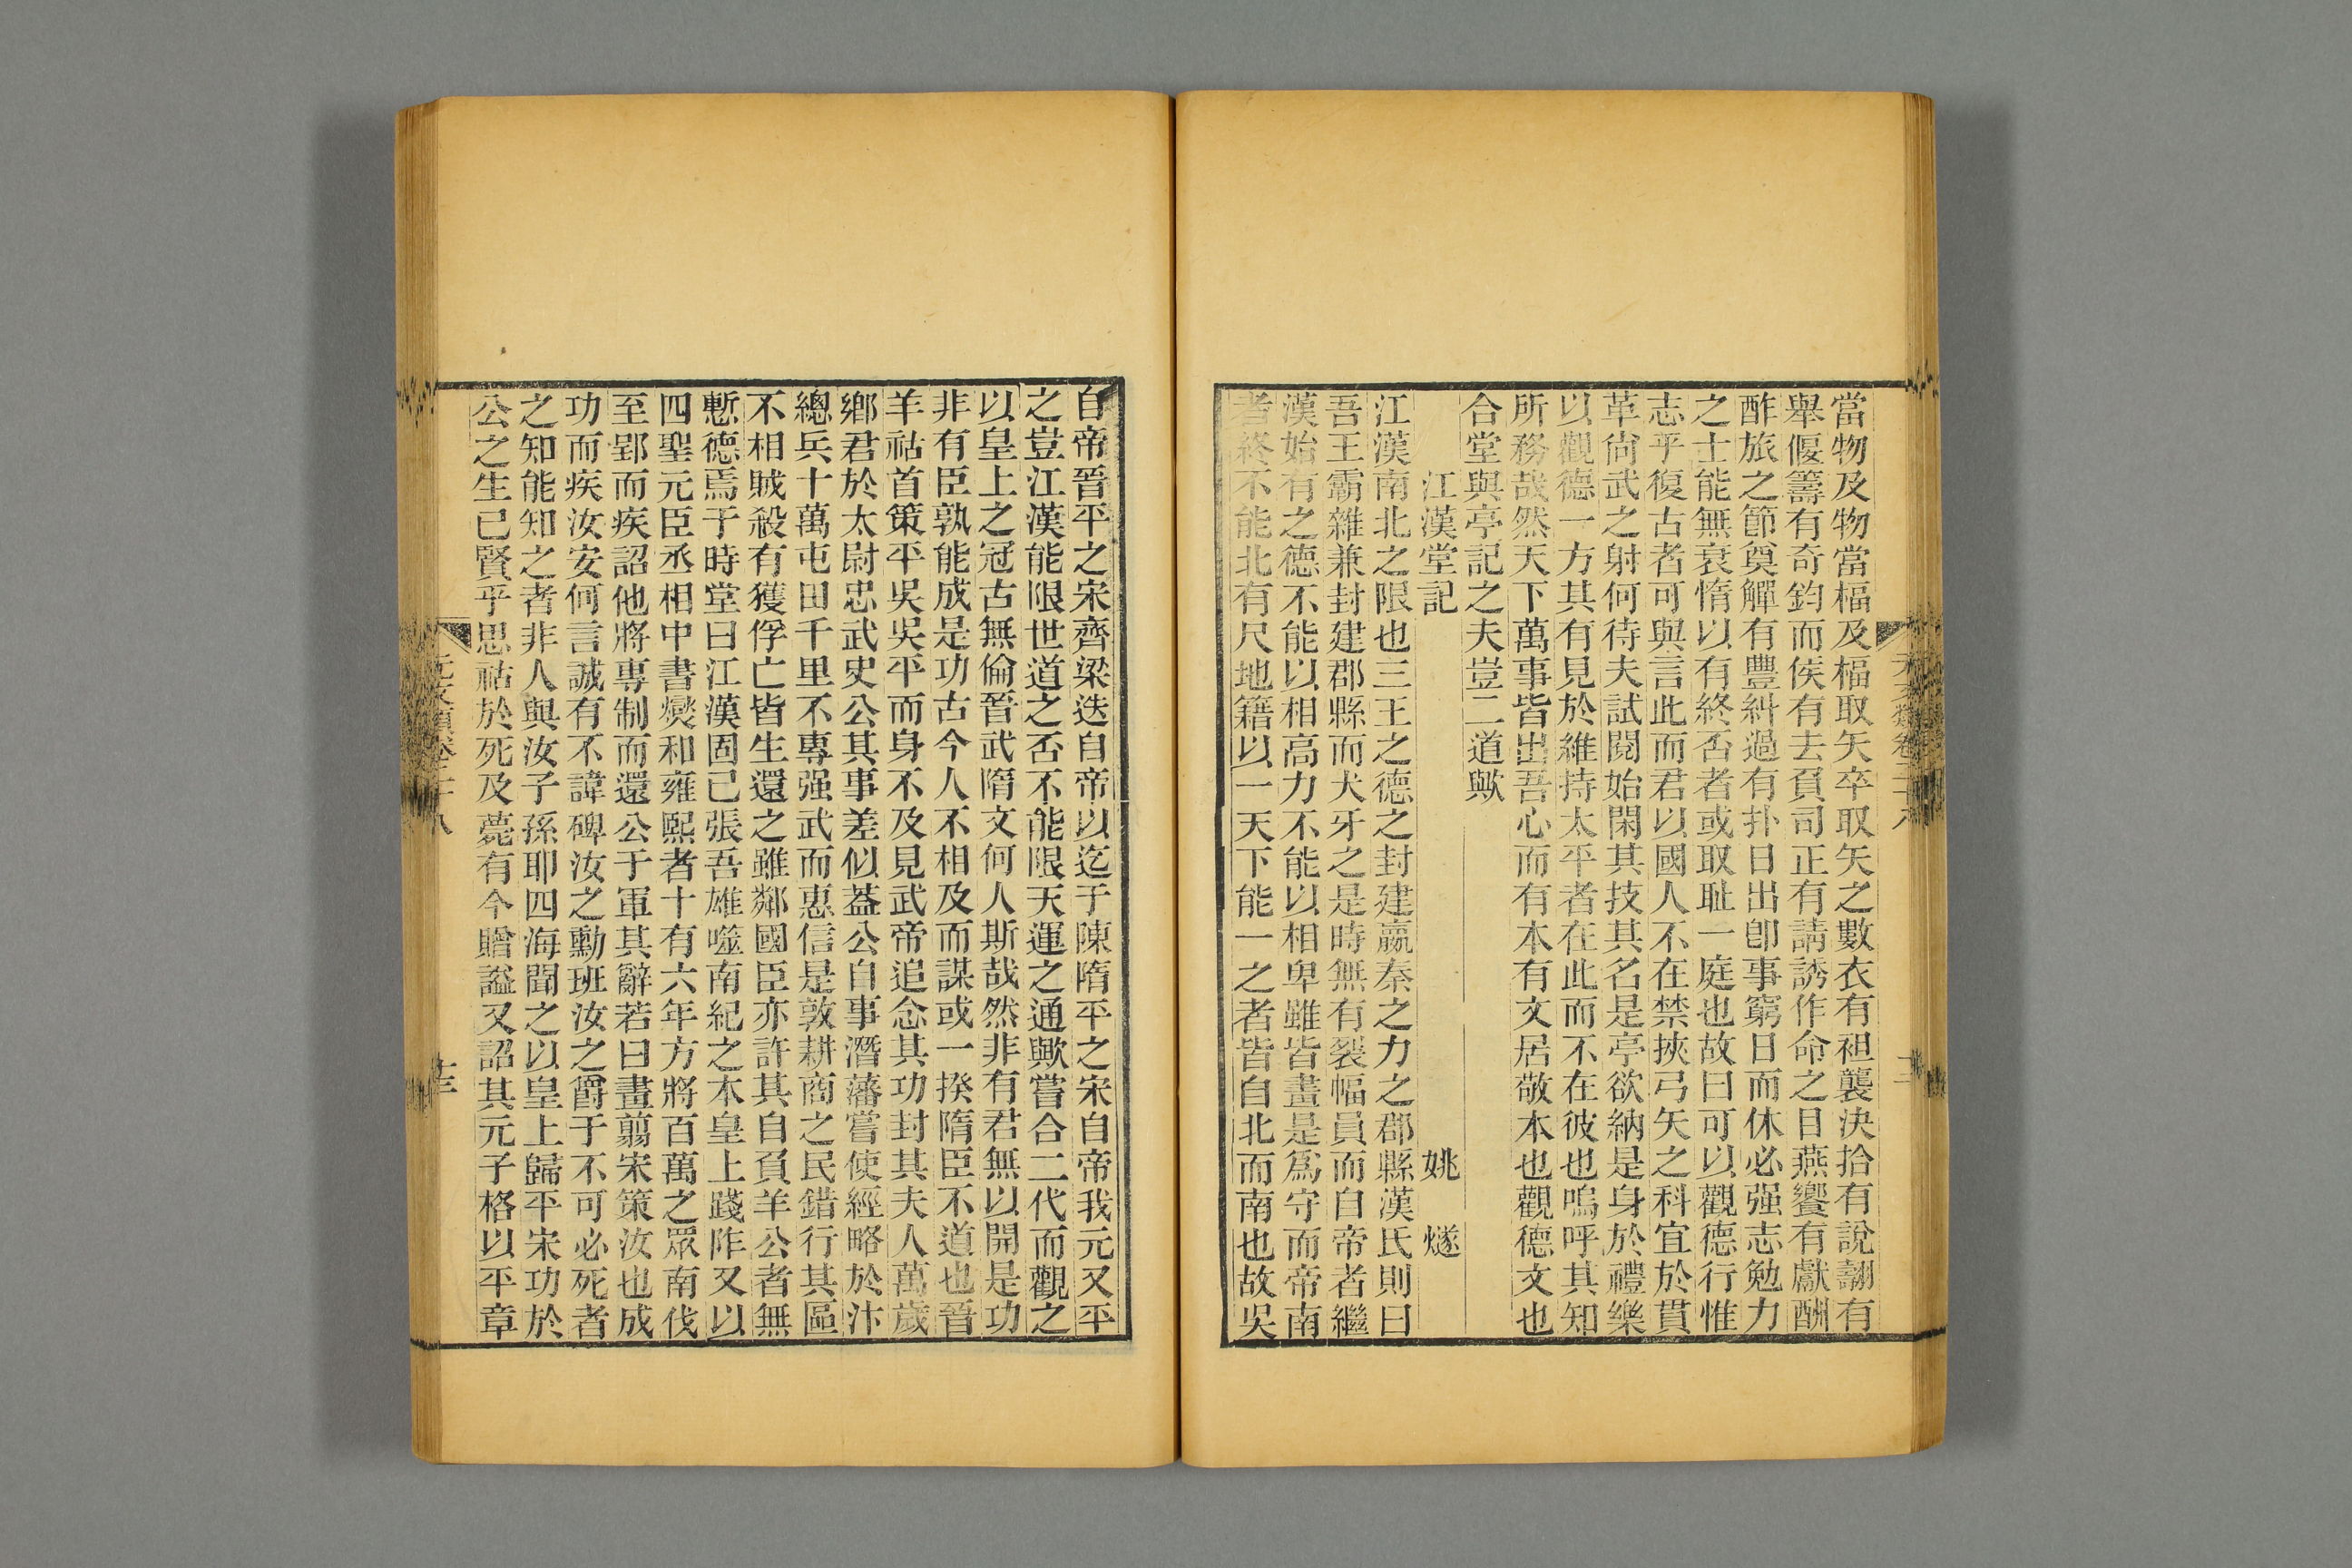 當物及物當楅及楅取矢卒取矢之數衣有袒襲決拾有說翿有
舉偃籌有奇鈞而侯有去負司正有請誘作命之目燕饗有獻酬
酢旅之節奠觶有豐糾過有扑日出卽事窮日而休必强志勉力
之士能無衰惰以有終否者或取耻一庭也故曰可以觀德行惟
志乎復古者可與言此而君以國人不在禁挾弓矢之科宜於貫
革尙武之射何待夫試閱始閑其技其名是亭欲納是身於禮樂
以觀德一方其有見於維持太平者在此而不在彼也嗚呼其知
所務哉然天下萬事皆出吾心而有本有文居敬本也觀德文也
合堂與亭記之夫豈二道歟
江漢堂記　姚燧
江漢南北之限也三王之德之封建嬴秦之力之郡縣漢氏則曰
吾王霸雜兼封建郡縣而犬牙之是時無有裂幅員而自帝者繼
漢始有之德不能以相高力不能以相卑雖皆畫是爲守而帝南
者終不能北有尺地籍以一天下能一之者皆自北而南也故吳
自帝晉平之宋齊梁迭自帝以迄于陳隋平之宋自帝我元又平
之豈江漢能限世道之否不能限天運之通歟嘗合二代而觀之
以皇上之冠古無倫晉武隋文何人斯哉然非有君無以開是功
非有臣孰能成是功古今人不相及而謀或一揆隋臣不道也晉
羊祜首策平吳吳平而身不及見武帝追念其功封其夫人萬歲
鄉君於太尉忠武史公其事差似葢公自事潛藩嘗使經略於汴
總兵十萬屯田千里不專强武而惠信是敦耕商之民錯行其區
不相賊殺有獲俘亡皆生還之雖鄰國臣亦許其自負羊公者無
慙德焉于時堂曰江漢固已張吾雄噬南紀之本皇上踐阼又以
四聖元臣丞相中書爕和雍熙者十有六年方將百萬之眾南伐
至郢而疾詔他將專制而還公于軍其辭若曰畫翦宋策汝也成
功而疾汝安何言誠有不諱碑汝之勳班汝之爵于不可必死者
之知能知之者非人與汝子孫耶四海聞之以皇上歸平宋功於
公之生已賢乎思祜於死及薨有今贈謚又詔其元子格以平章